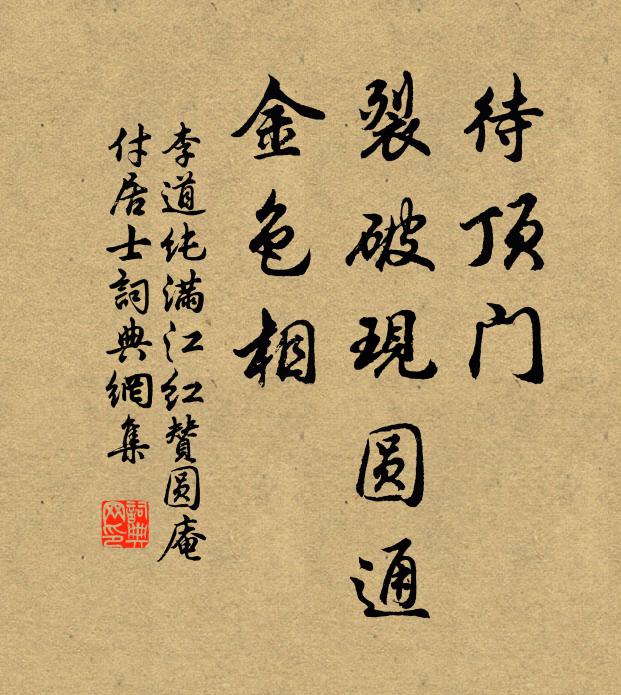 待顶门
裂破現圆通
金色相
李道纯满江红賛圆庵
付居士詞典網集
詞典
网印